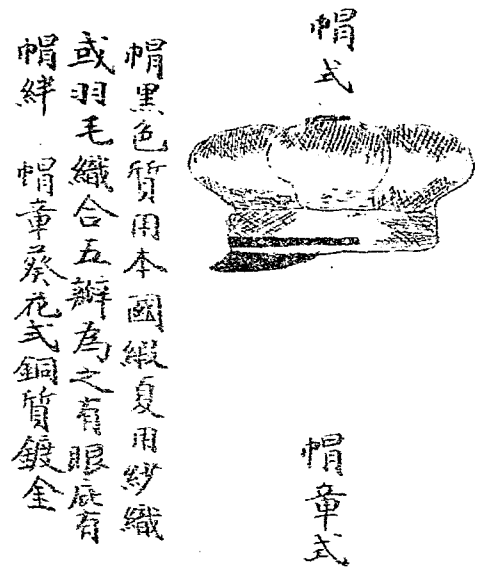 帽式
帽章式
帽黑色質用本國緞夏用紗織
或羽毛織合五瓣為之有眼庇有
帽絆 帽章葵花式銅質鍍金